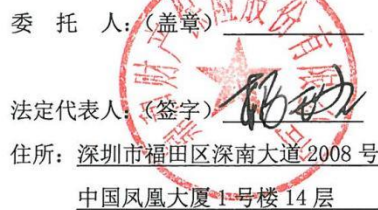 委 托 人：（盖章）
财产保险股份有限公司
法定代表人：（签字）
住所：深圳市福田区深南大道 2008 号
中国凤凰大厦 1 号楼 14 层